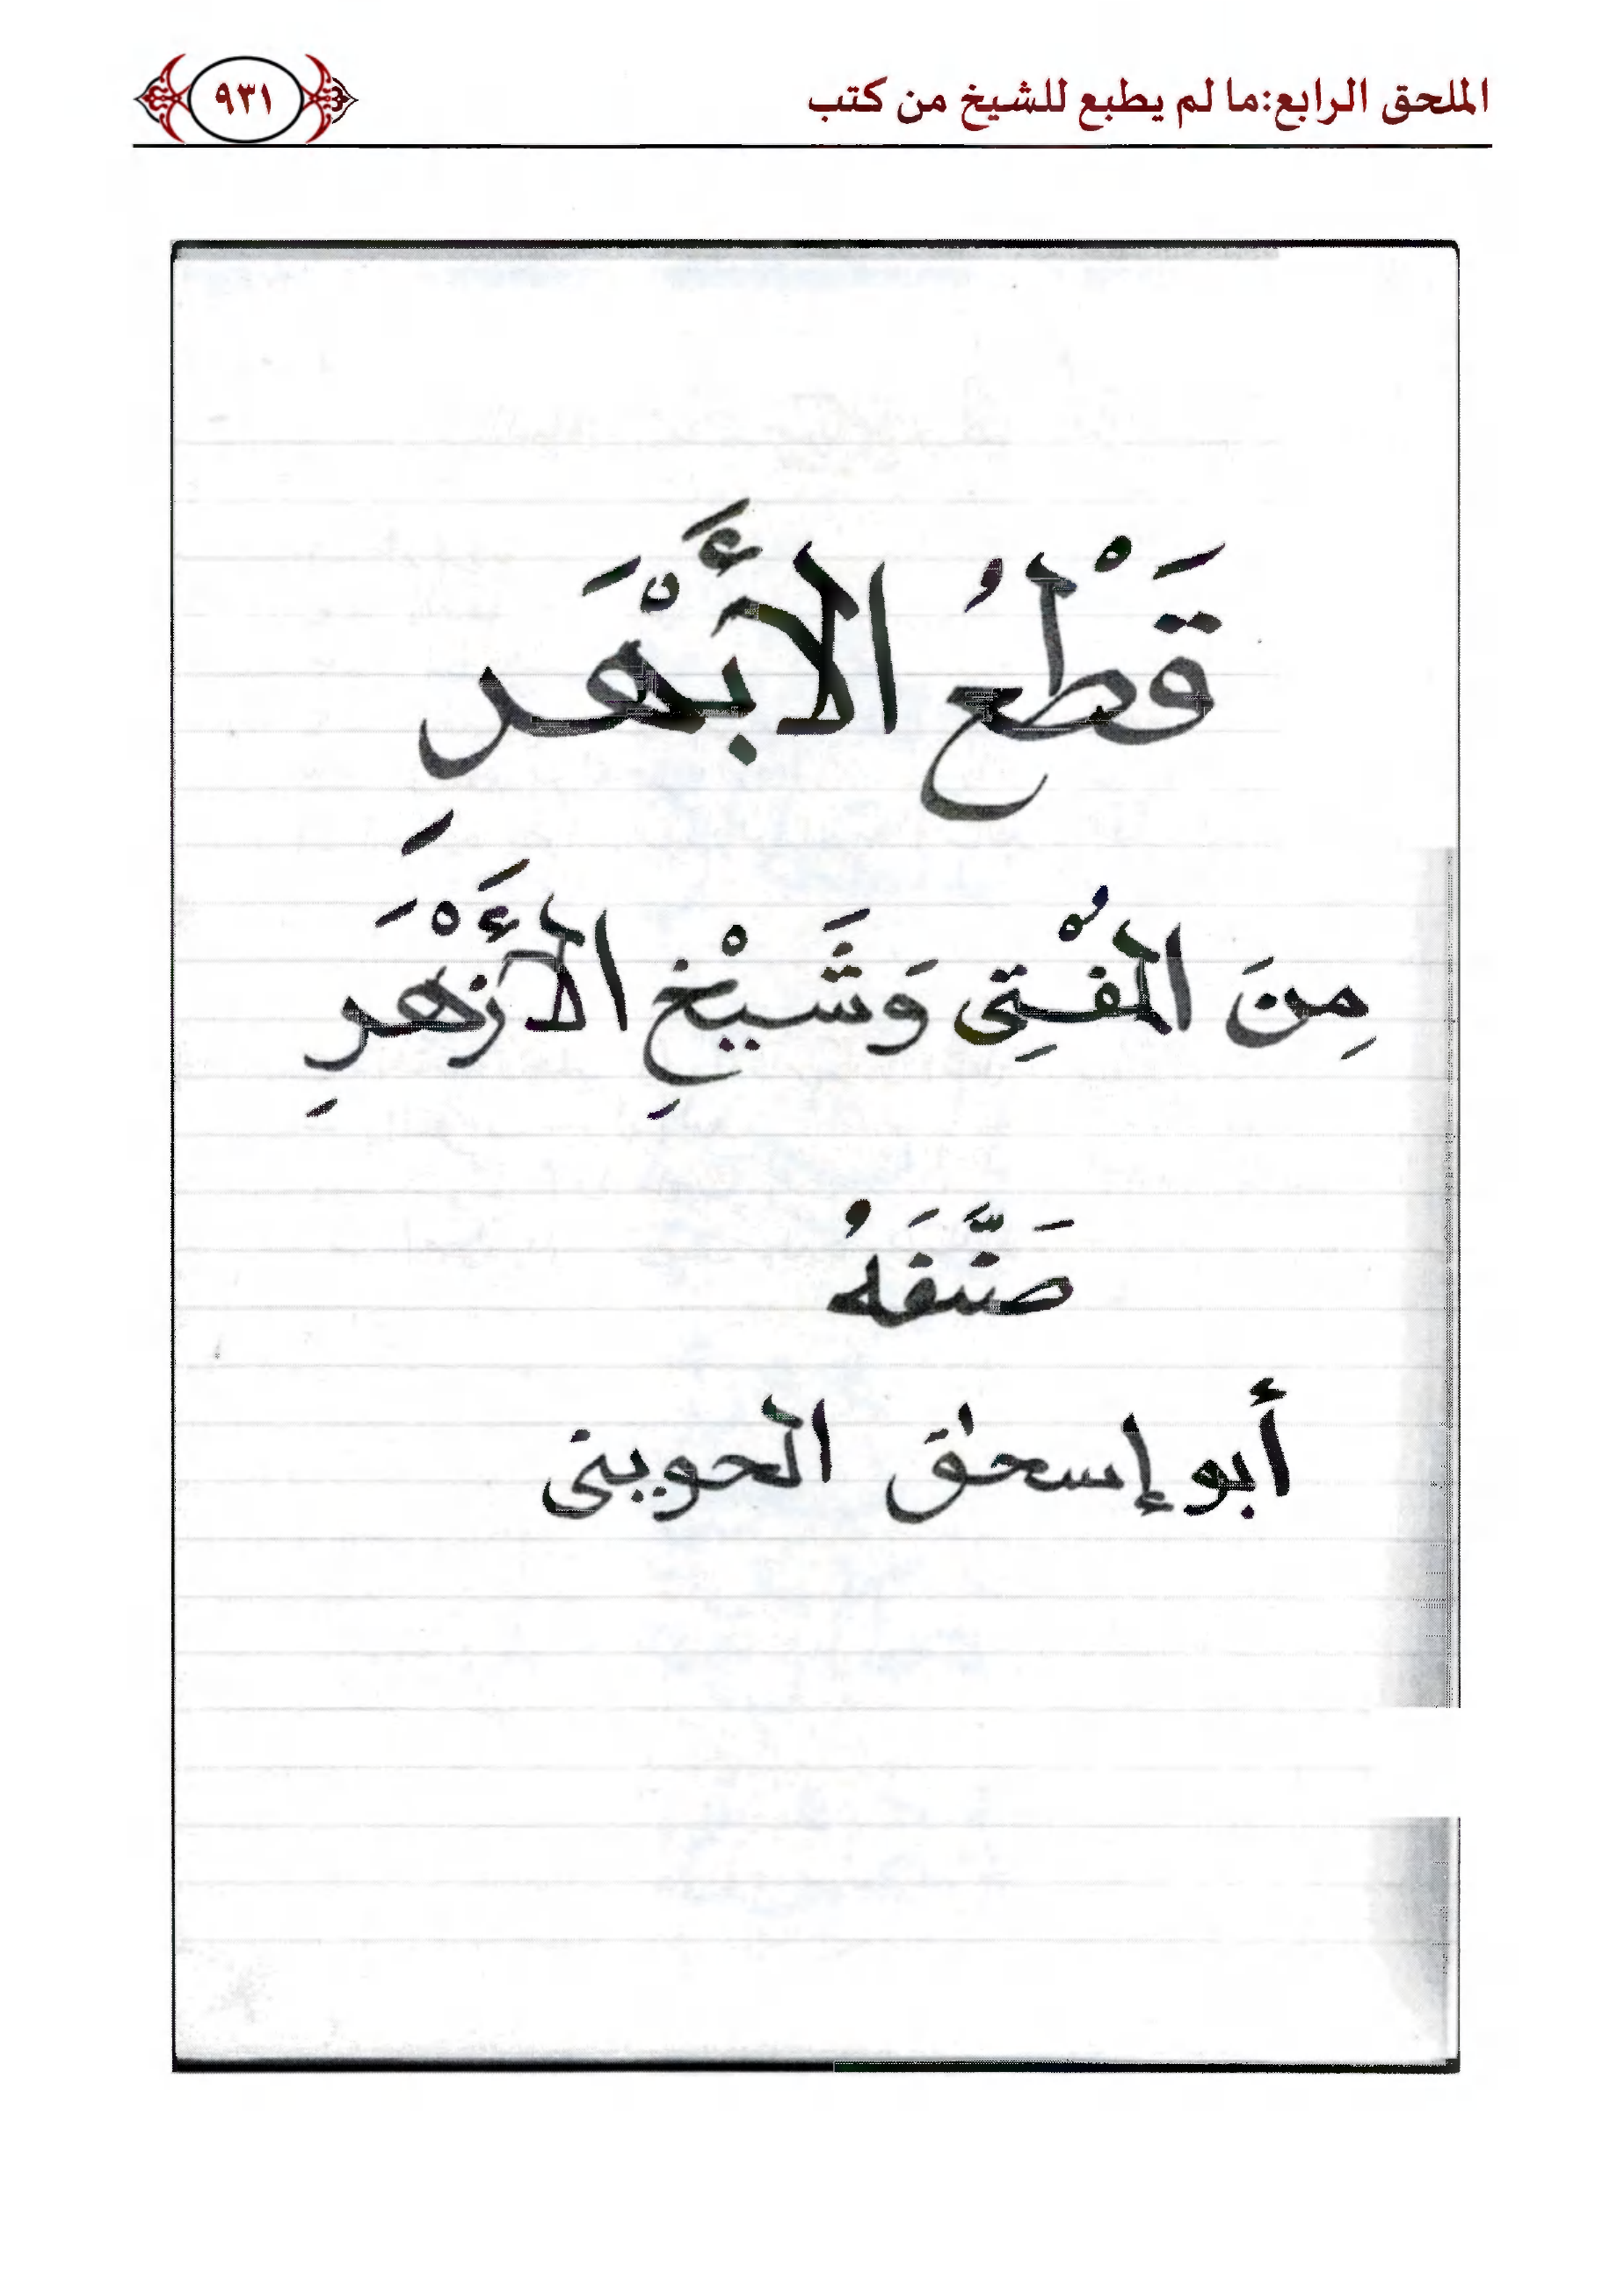 الملحق الرابع:ما لم يطبع للشيخ من كتب
٩٣١
قَطْعُ الأَبْهَرِ
مِنَ المُفْتِى وَشَيْخِ الأَزْهَرِ
صَنَّفَهُ
أبو إسحٰقَ الحوينى